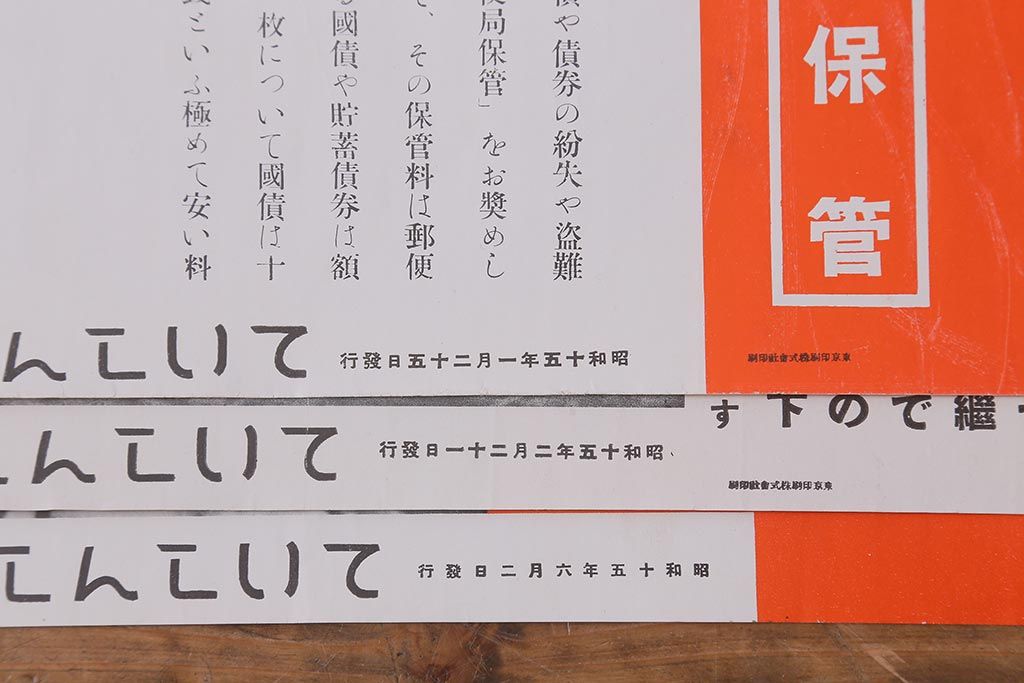 保管
債や債券の紛失や盗難
便局保管」をお奬めし
て、その保管料は郵便
る國債や貯蓄債券は額
枚について國債は十
といふ極めて安い料
東京印刷株式會社印刷
昭和十五年一月二十五日發行
ていこん
繼での下す
東京印刷株式會社印刷
昭和十五年二月二十一日發行
ていこん
昭和十五年六月二日發行
ていこんこ